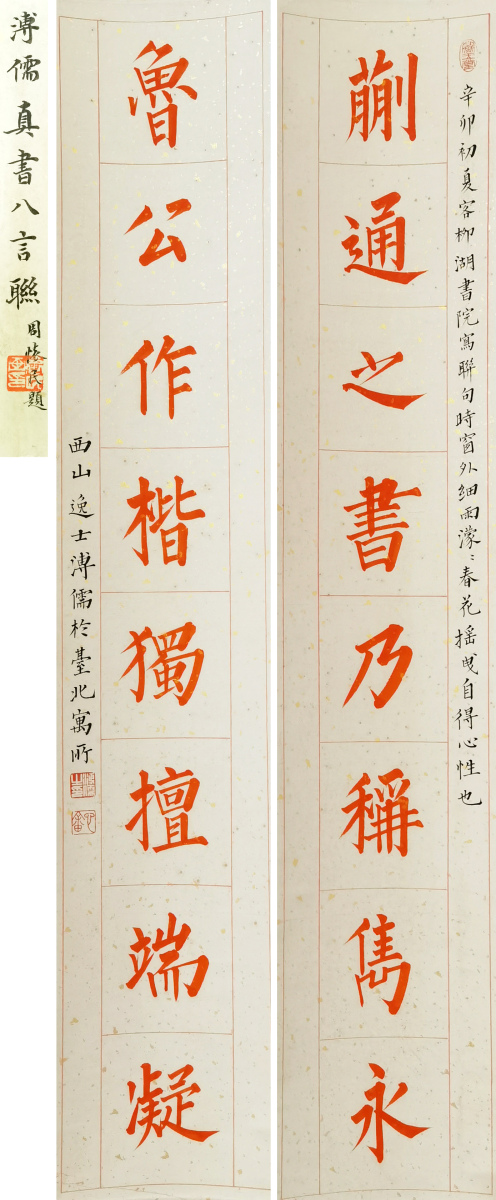 辛卯初夏客柳湖書院寫聯句時窗外細雨濛〻春花搖曳自得心性也
蒯通之書乃稱雋永
魯公作楷獨擅端凝
西山逸士溥儒於臺北寓所
溥儒真書八言聯
周懷民題